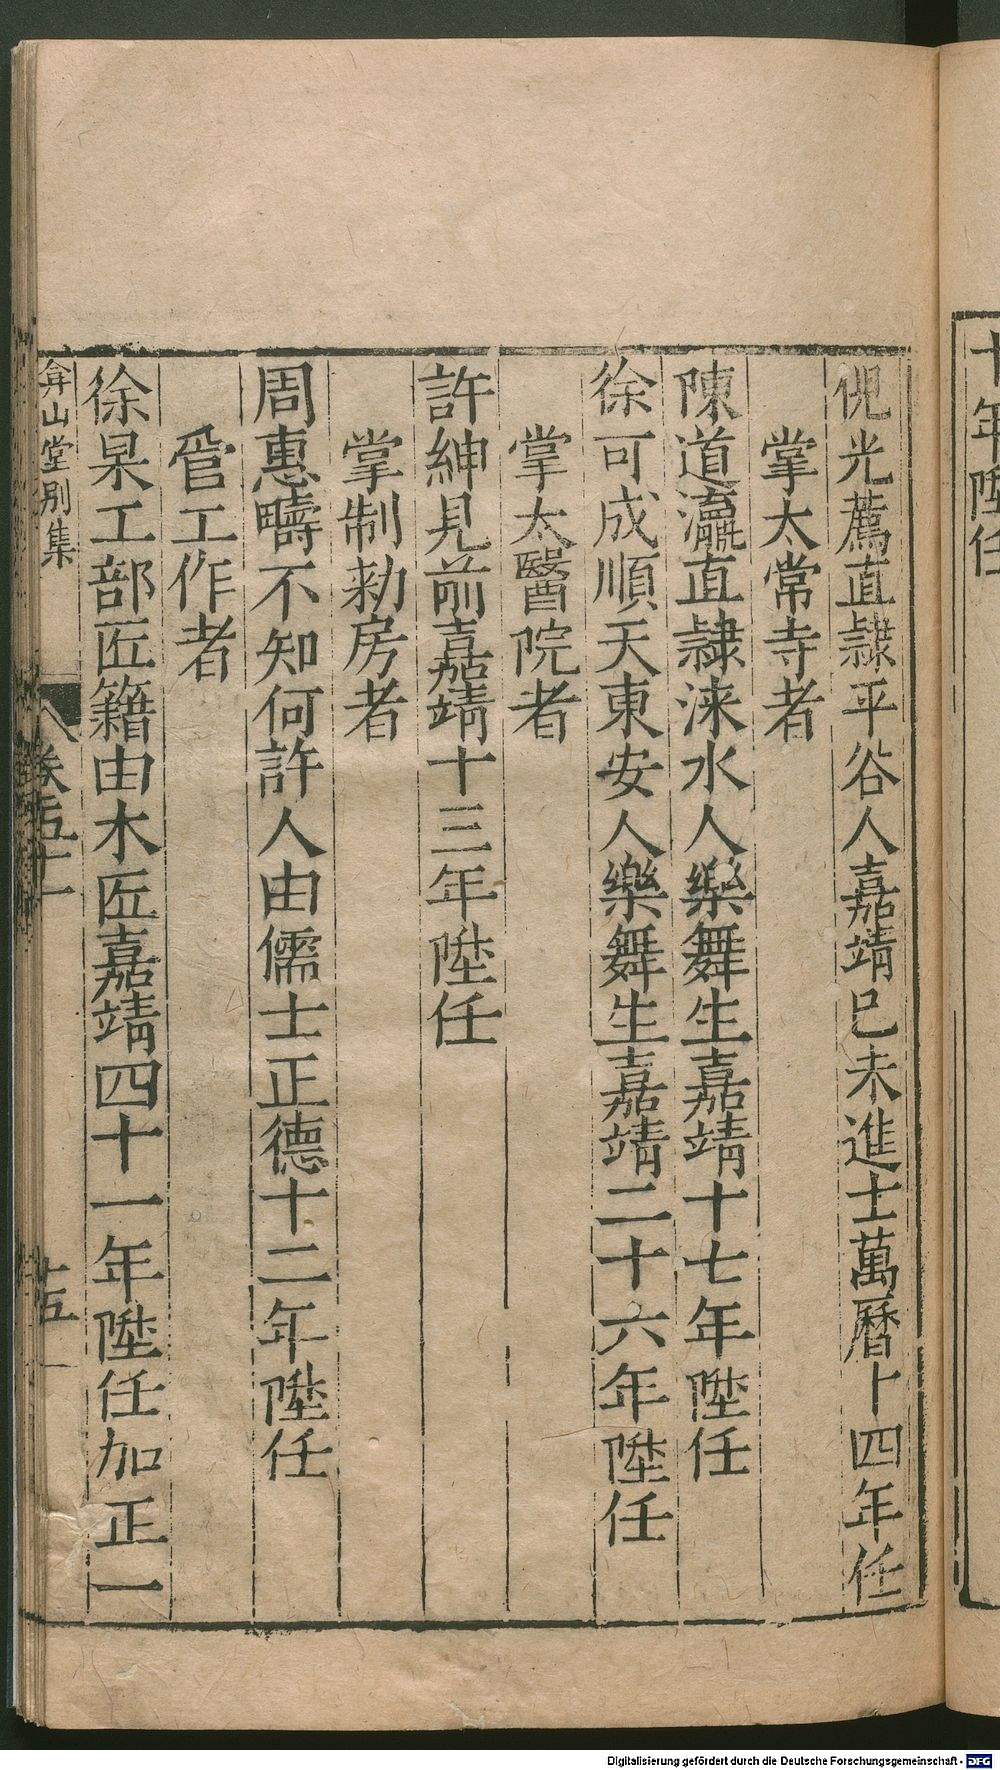 十年陞任
倪光薦直隷平谷人嘉靖己未進士萬曆十四年任
掌太常寺者
陳道瀛直隷淶水人樂舞生嘉靖十七年陞任
徐可成順天東安人樂舞生嘉靖二十六年陞任
掌太醫院者
許紳見前嘉靖十三年陞任
掌制勑房者
周惠疇不知何許人由儒士正德十二年陞任
管工作者
徐杲工部匠籍由木匠嘉靖四十一年陞任加正一
弇山堂別集 卷五十一
Digitalisierung gefördert durch die Deutsche Forschungsgemeinschaft - DFG